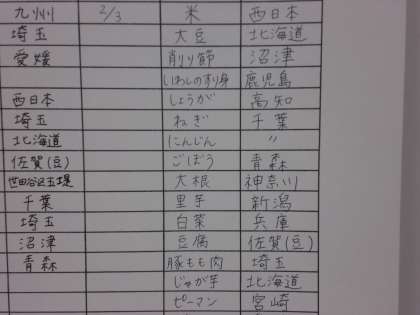 九州 2/3 米 西日本
埼玉 大豆 北海道
愛媛 削り節 沼津
いわしの刺身 鹿児島
西日本 しょうが 高知
埼玉 ねぎ 千葉
北海道 にんじん 〃
佐賀(豆) ごぼう 青森
世田谷区玉堤 大根 神奈川
千葉 里芋 新潟
埼玉 白菜 兵庫
沼津 豆腐 佐賀(豆)
青森 豚もも肉 埼玉
じゃが芋 北海道
ピーマン 宮崎